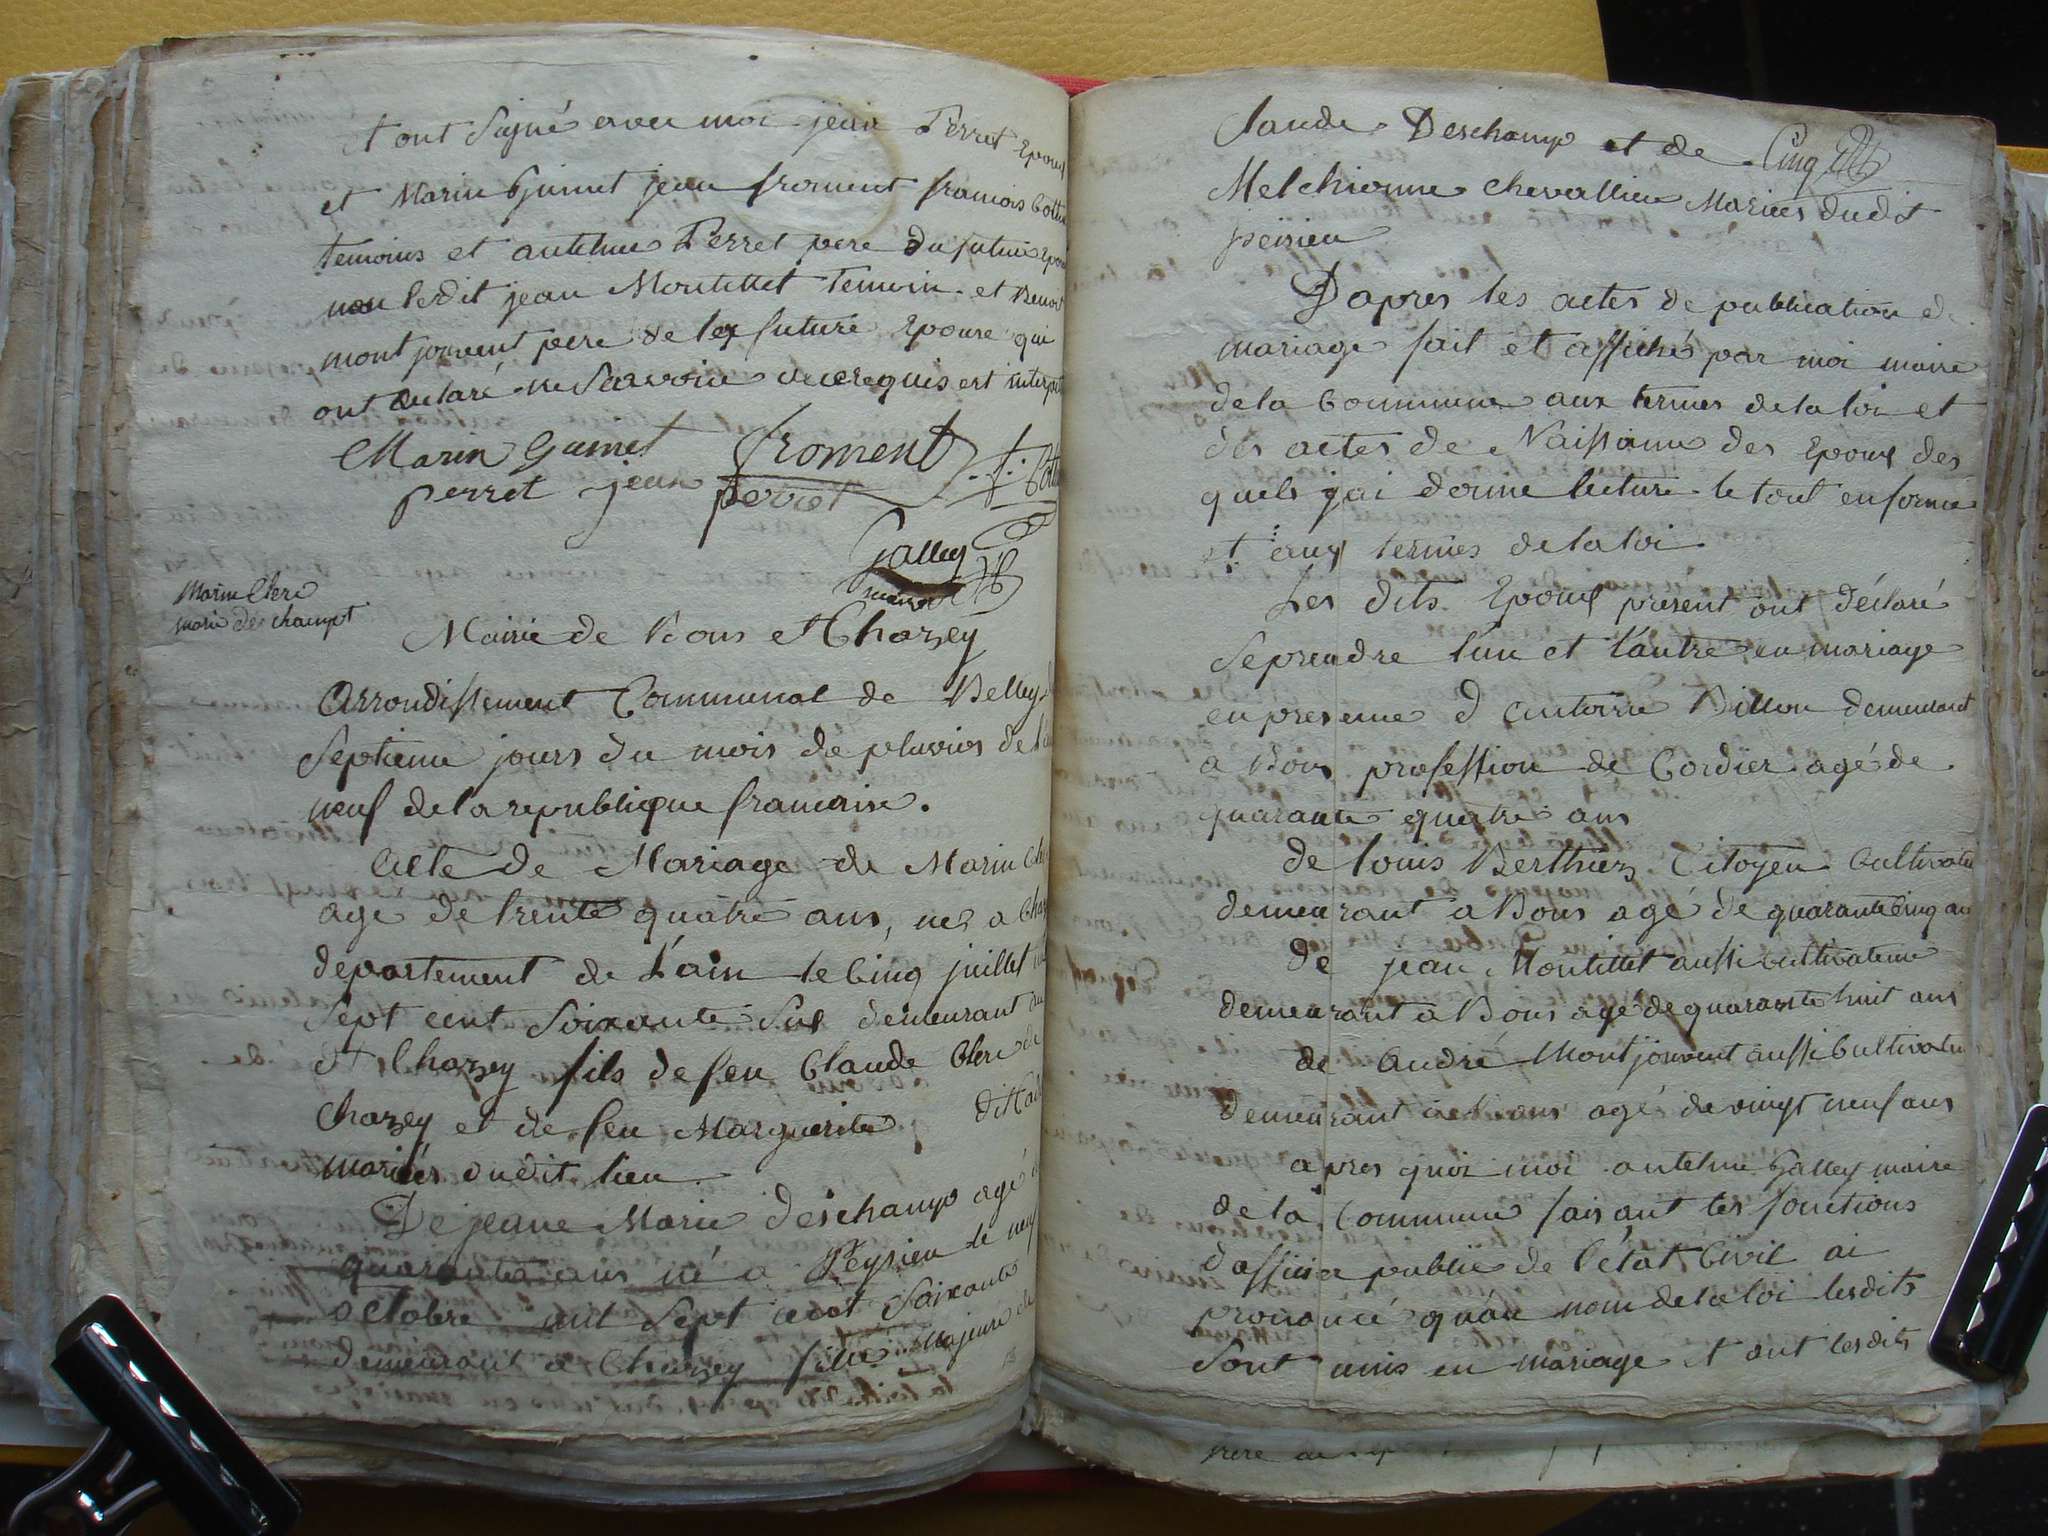 et ont Signé avec moi jean Perret Epoux
et Marin Guinet jean froment francois Cottin
temoins et antelme Perret pere du futur Epoux
non ledit jean Montillet temoin et Benoit
mont jouvent pere de la future Epouse qui
ont declaré ne Savoir de ce requis est interpellé
Marin Guinet froment
perret jean perret
Galley
maire
Marin Clerc
marie deschampt
Mairie de Bons et Chazey
Arrondissement Communal de Belley
Septieme jours du mois de pluvios de l'an
neuf de la republique francaise.
Acte de Mariage de Marin
age de trente quatre ans, né a
departement de L'ain le Cinq juillet
Sept cent Soixante Six demeurant au
dt Chazey fils de feu Claude Clerc de
Chazey et de feu Marguerite
mariés dudit lieu
De jeane Marie deschamp agé
quarante ans né a Peysieu le neuf
octobre mil Sept cent Soixante
demeurant a Chazey fille Majeure de
Claude Deschamp et de Cinq
Melchionne Chevallier Mariés dudit
peisieu
D'apres les actes de publication de
mariage fait et affiché par moi maire
de la Commune aux termes de la loi et
des actes de Naissance des Epoux des
quels j'ai donné lecture le tout en forme
et aux termes de la loi
Les dits Epoux present ont déclaré
Se prendre l'un et l'autre en mariage
en presence d antoine Billon demeurant
a Bons profession de Cordier agé de
quarante quatre ans
de louis Berthier Citoyen Cultivateur
demeurant a Bons agé de quarante Cinq ans
de jean Montillet aussi cultivateur
demeurant a Bons agé de quarante huit ans
de andré Montjouvent aussi Cultivateur
demeurant a Bons agé de vingt neuf ans
apres quoi moi antelme Galley maire
de la Commune faisant les fonctions
d'officier public de l'état Civil ai
prononcé qu'au nom de la loi lesdits
Sont unis en mariage et ont lesdits